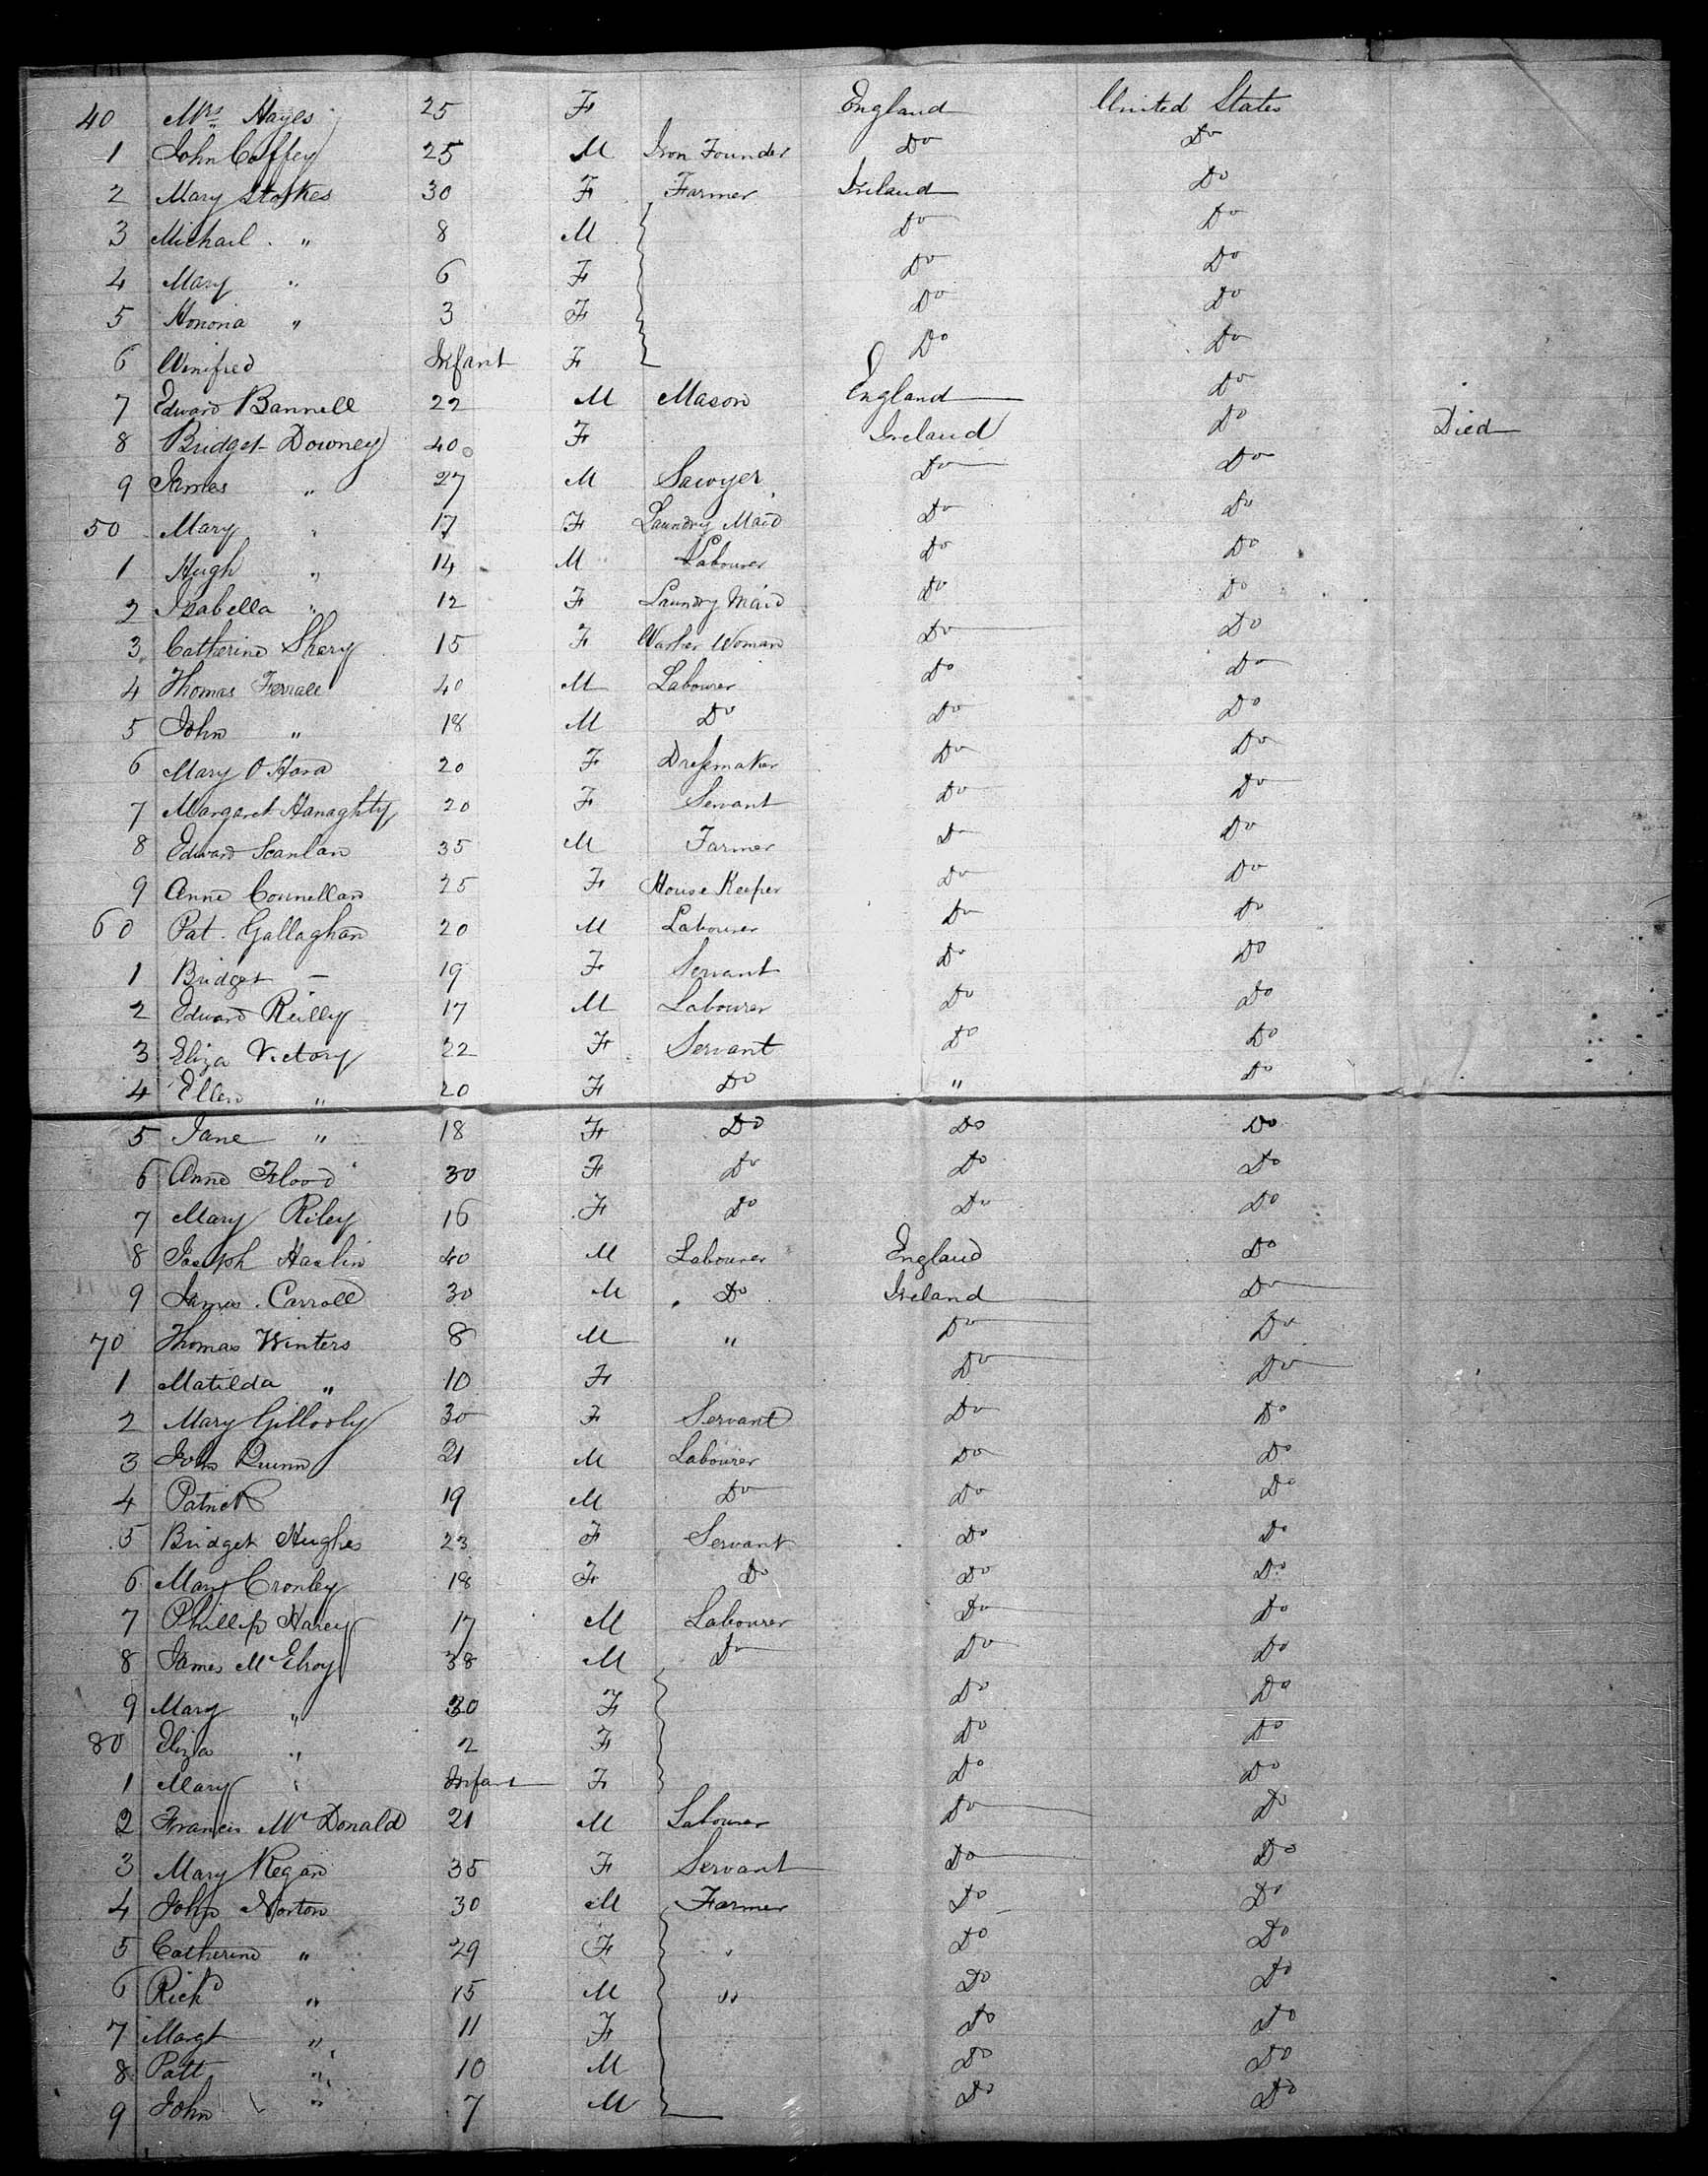 40 Mrs Hayes 25 F England United States
1 John Coffey 25 M Iron Founder Do Do
2 Mary Stokes 30 F Farmer Ireland Do
3 Michail " 8 M Do Do
4 Mary " 6 F Do Do
5 Honoria " 3 F Do Do
6 Winifred Infant F Do Do
7 Edward Bannell 22 M Mason England Do
8 Bridget Downey 40 F Ireland Do Died
9 James " 27 M Sawyer Do Do
50 Mary " 17 F Laundry Maid Do Do
1 Hugh " 14 M Labourer Do Do
2 Isabella " 12 F Laundry Maid Do Do
3 Catherine Shery 15 F Washer Woman Do Do
4 Thomas Ferrall 40 M Labourer Do Do
5 John " 18 M Do Do Do
6 Mary O Hara 20 F Dressmaker Do Do
7 Margaret Hanaghty 20 F Servant Do Do
8 Edward Scanlan 35 M Farmer Do Do
9 Anne Connellan 25 F House Keeper Do Do
60 Pat. Gallaghan 20 M Labourer Do Do
1 Bridget — 19 F Servant Do Do
2 Edward Reilly 17 M Labourer Do Do
3 Eliza Victory 22 F Servant Do Do
4 Ellen " 20 F Do " Do
5 Jane " 18 F Do Do Do
6 Anne Flood 30 F Do Do Do
7 Mary Riley 16 F Do Do Do
8 Joseph 40 M Labourer England Do
9 James Carroll 30 M Do Ireland Do
70 Thomas Winters 8 M " Do Do
1 Matilda " 10 F Do Do
2 Mary Gillooly 30 F Servant Do Do
3 John Quinn 21 M Labourer Do Do
4 Patrick 19 M Do Do Do
5 Bridget Hughes 23 F Servant Do Do
6 Mary Cronley 18 F Do Do Do
7 Phillip 17 M Labourer Do Do
8 James McElroy 38 M Do Do Do
9 Mary " 30 F Do Do
80 Eliza " 2 F Do Do
1 Mary " Infant F Do Do
2 Francis McDonald 21 M Labourer Do Do
3 Mary Regan 35 F Servant Do Do
4 John Norton 30 M Farmer Do Do
5 Catherine " 29 F " Do Do
6 Richd " 15 M " Do Do
7 Margt " 11 F Do Do
8 Patt " 10 M Do Do
9 John " 7 M Do Do